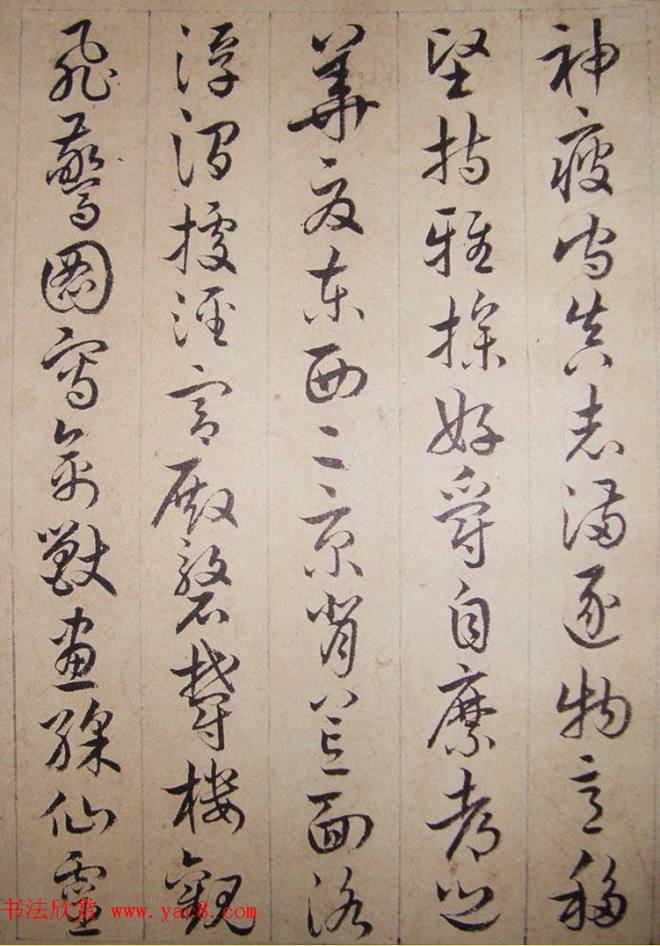 神疲守真志滿逐物意移
堅持雅操好爵自縻都邑
華夏東西二京背芒面洛
浮渭據涇宮殿磐鬱樓觀
飛驚圖寫禽獸畫綵仙靈
书法欣赏 www.yac8.com